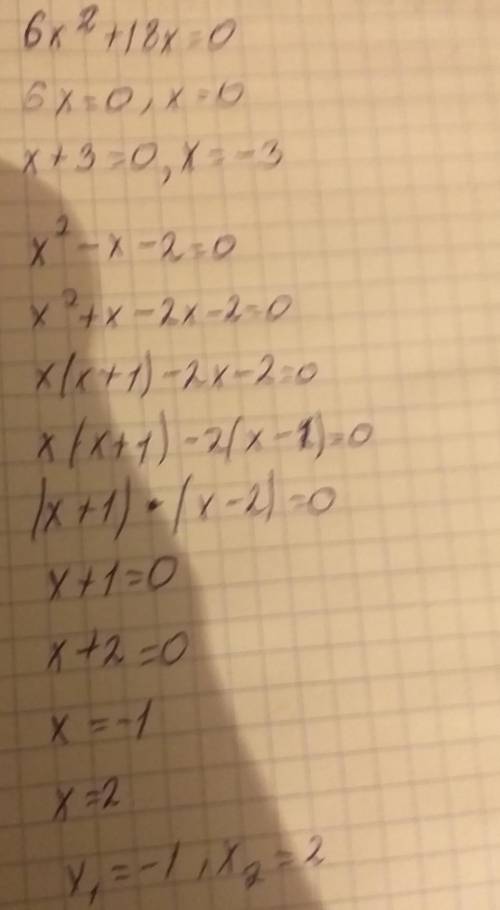 6x² + 18x = 0
6x = 0, x = 0
x + 3 = 0, x = -3
x² - x - 2 = 0
x² + x - 2x - 2 = 0
x(x+1) - 2x - 2 = 0
x(x+1) - 2(x-1) = 0
(x+1) · (x-2) = 0
x + 1 = 0
x + 2 = 0
x = -1
x = 2
x₁ = -1, x₂ = 2